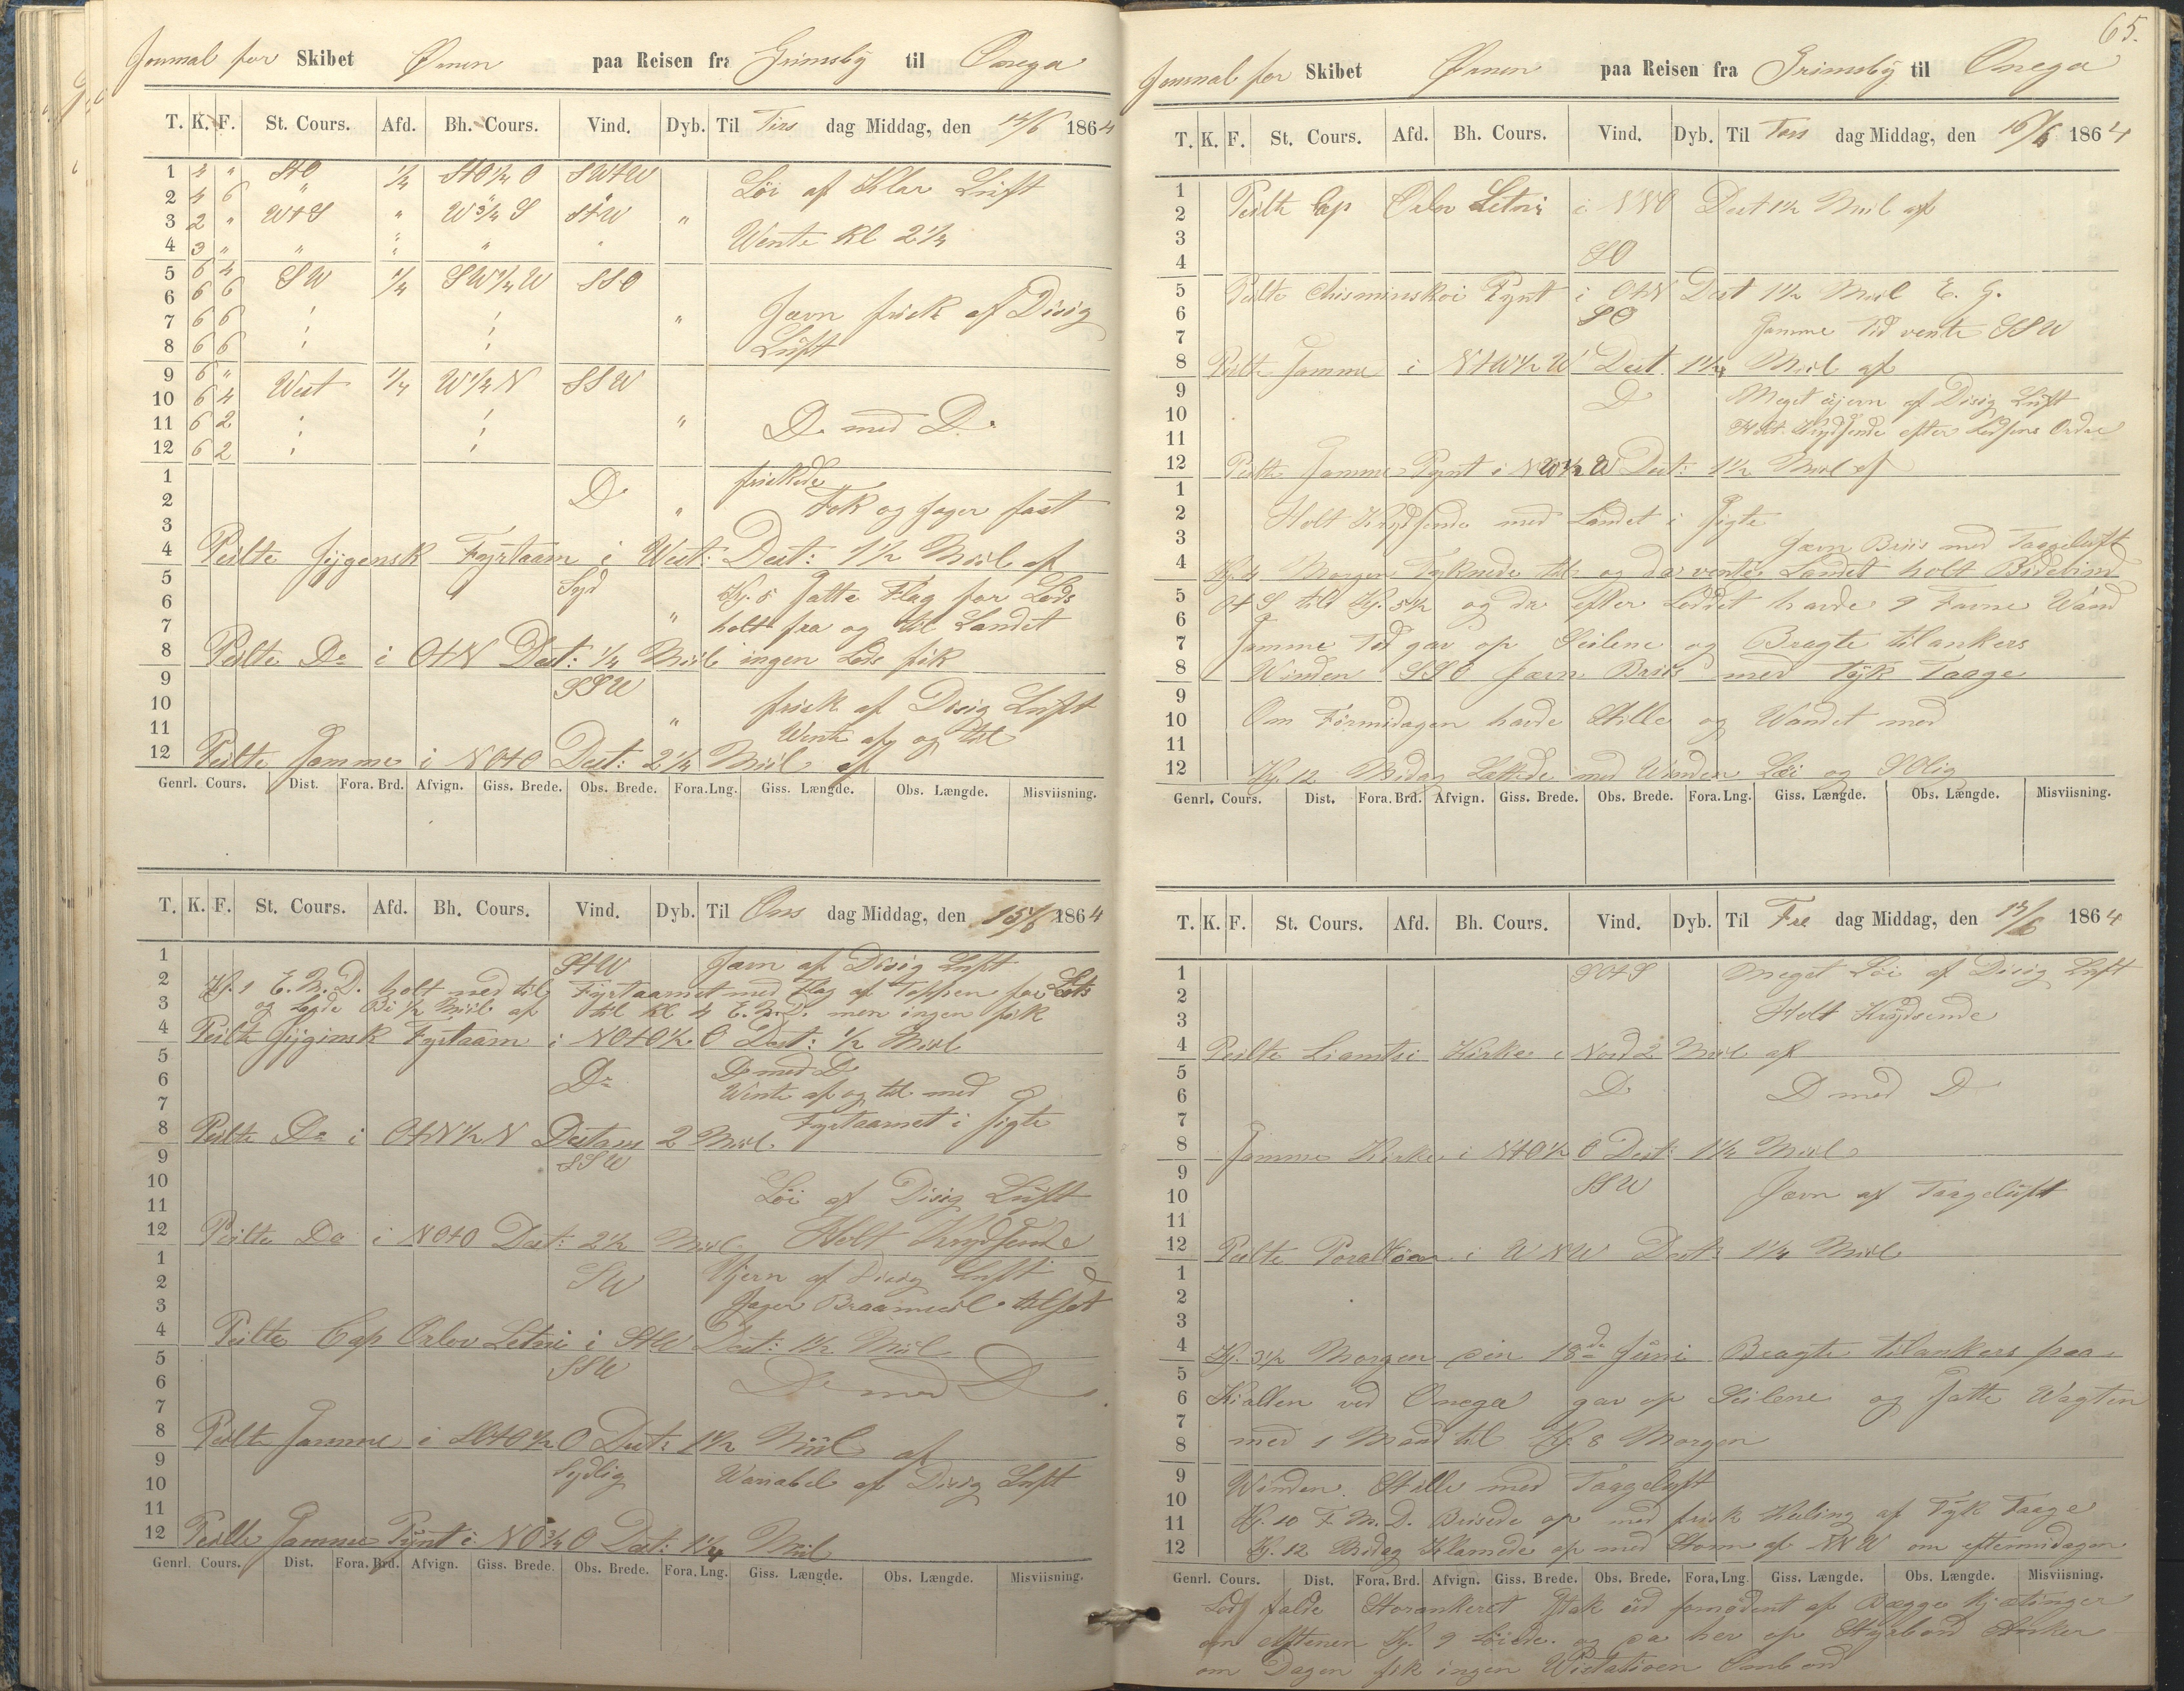 Journal for Skibet Ørnen paa Reisen fra Grimsby til Onega
T. K. F. St. Cours. Afd. Bh. Cours. Vind. Dyb. Til Tirs dag Middag, den 14/6 1864
1 4 " StO 1/4 StO 1/4 O SWtW
Löi af Klar Luft
2 4 6 "
3 2 " WtS " W 3/4 S StW "
Wente Kl 2 1/4
4 3 " " " " "
5 6 4 SW 1/4 SW 1/4 W SSO
6 6 6
Jævn frisk af Disig
7 6 6 "
8 6 6
Luft
9 6 " West 1/4 W 1/4 N SSW
10 6 4
11 6 2 " D. med D.
12 6 2
1 friskede
2 D " Fok og Jager fast
3
4 Peilte Jijgensk Fyrtaarn i West: Dest: 1 1/2 Miil af
5 Syd Kl. 5 Satte Flag for Lods
6
7 " holt fra og til Landet
8 Peilte Do i OtN Dest: 1/4 Miil ingen Lods fik
9 SSW
10 frisk af Disig Luft
11 " Wente af og til
12 Peilte Samme i NOtO Dest: 2 1/4 Miil af
Genrl. Cours. Dist. Fora. Brd. Afvign. Giss. Brede. Obs. Brede. Fora. Lng. Giss. Længde. Obs. Længde. Misviisning.
T. K. F. St. Cours. Afd. Bh. Cours. Vind. Dyb. Til Ons dag Middag, den 15/6 1864
1 StW Jævn af Disig Luft
2 Kl. 1 E.M.D. holt ned til Fyrtaarnet med Flag af Toppen for Lots
3 og Lagde Bi 1/2 Miil af til Kl 4 E.M.D. men ingen fik
4 Peilte Jijginsk Fyrtaarn i NOtO 1/2 O Dest: 1/2 Miil
5 D med D
6 Do Wente af og til med
7 Fyrtaarnet i Sigte
8 Peilte Do i OtN 1/2 N Destans 2 Miil
9 SSW
10 Löi af Disig Luft
11
12 Peilte Do i NOtO Dest: 2 1/2 Miil Holt Krydsende
1 Ujevn af Disig Luft
2 SW
3 Jager Braamseil tilsat
4 Peilte Cap Orlov Letni i StW Dest: 1 1/2 Miil
5 SSW
6 Do med D
7
8 Peilte Samme i SOtO 1/2 O Dest: 1 1/2 Miil af
9 Sydlig Variabel af Disig Luft
10
11
12 Peilte Samme Pynt i NO 3/4 O Dest: 1 1/4 Miil
Genrl. Cours. Dist. Fora. Brd. Afvign. Giss. Brede. Obs. Brede. Fora. Lng. Giss. Længde. Obs. Længde. Misviisning.
65.
Journal for Skibet Ørnen paa Reisen fra Grimsby til Onega
T. K. F. St. Cours. Afd. Bh. Cours. Vind. Dyb. Til Tors dag Middag, den 16/6 1864
1
2 Peilte Cap Orlov Letni i NNO Dest 1 1/2 Miil af
3
4 SO
5 Peilte Chisminskoi Pynt i OtN Dest 1 1/2 Miil E. G.
6 SO
7 Samme Tid vente SSW
8 Peilte Samme i NtW 1/2 W Dest. 1 1/4 Miil af
9 D Meget ujevn af Disig Luft
10
11 Holt Krydsende efter Lodsens Ordre
12 Peilte Samme Pynt i NW 1/2 W Dest: 1 1/2 Miil af
1
2 Holt Krydsende med Landet i Sigte
3 Jævn Briis med Taageluft
4 Kl. 4 Morgen Tyknede til og da vente Landet holt Bidevind
5 OtS til Kl. 5 1/2 og da efter Loddet havde 9 Favne Wand
6
7 Samme Tid gav op Seilene og Bragte tilankers
8 Winden SSO Jævn Briis med Tyk Taage
9
10 Om Formidagen havde Stille og Wandet med
11
12 Kl. 12 Midag Lettede med Winden Löi og SOlig
Genrl. Cours. Dist. Fora. Brd. Afvign. Giss. Brede. Obs. Brede. Fora. Lng. Giss. Længde. Obs. Længde. Misviisning.
T. K. F. St. Cours. Afd. Bh. Cours. Vind. Dyb. Til Fre dag Middag, den 17/6 1864
1 SOtS Meget Löi af Disig Luft
2
3 Holt Krydsende
4 Peilte Liamtsi Kirke i Nord 2 Miil af
5
6 D D med D
7
8 Samme Kirke i NtO 1/2 O Dest: 1 1/4 Miil
9
10 SSW Jævn af Taageluft
11
12 Peilte i WNW Dest: 1 1/4 Miil
1
2
3
4 Kl. 3 1/2 Morgen den 18de Juni Bragte tilankers paa
5
6 Kiallen ved Onega gav op Seilene og Satte Wagten
7
8 med 1 Mand til Kl. 8 Morgen
9 Winden Stille med Taageluft
10
11 Kl. 10 F.M.D. Brisede op med frisk Kuling af Tyk Taage
12 Kl. 12 Midag Klarnede op med Storm af NNW om eftermidagen
Genrl. Cours. Dist. Fora. Brd. Afvign. Giss. Brede. Obs. Brede. Fora. Lng. Giss. Længde. Obs. Længde. Misviisning.
Lod falde Storankeret Stak ud af Begge Kjætinger
om Aftenen Kl. 9 Löiede og da hev op Styrbord Anker
om Dagen fik ingen Wistation Ombord